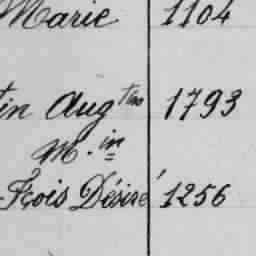 Marie 1104
tin Augtin 1793
M.in
Fçois Désiré 1256